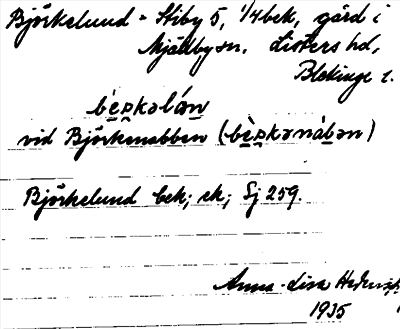 Björkelund = Stiby 5, 1/4 bek, gård i
Mjällby sn. Listers hd,
Blekinge l.
bè̱rkəlán̲
vid Björkenabben (bè̱rkənáb̲ən)
Björkelund bek; ek; Sj 259.
Anna-Lisa
1935